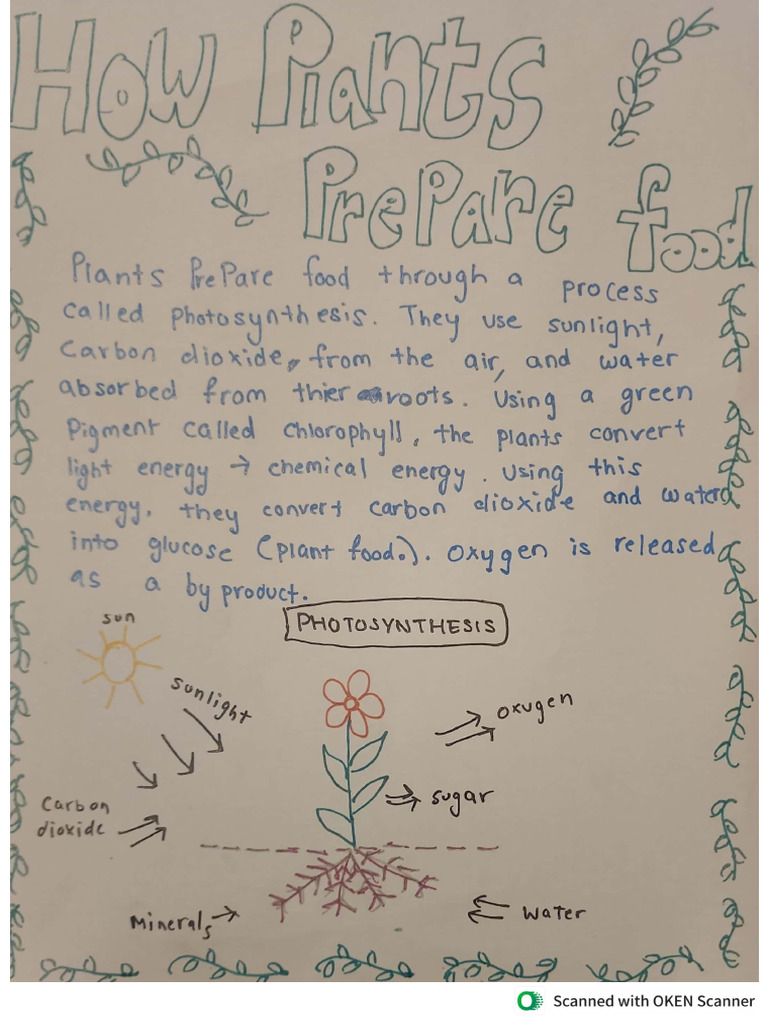 How Plants
Prepare food
Plants Prepare food through a process
called photosynthesis. They use sunlight,
Carbon dioxide, from the air, and water
absorbed from thier roots. Using a green
Pigment called chlorophyll, the plants convert
light energy → chemical energy. Using this
energy, they convert carbon dioxide and water
into glucose (plant food.). Oxygen is released
as a by product.
PHOTOSYNTHESIS
sun
sunlight
oxugen
sugar
Carbon
dioxide
Minerals
Water
Scanned with OKEN Scanner